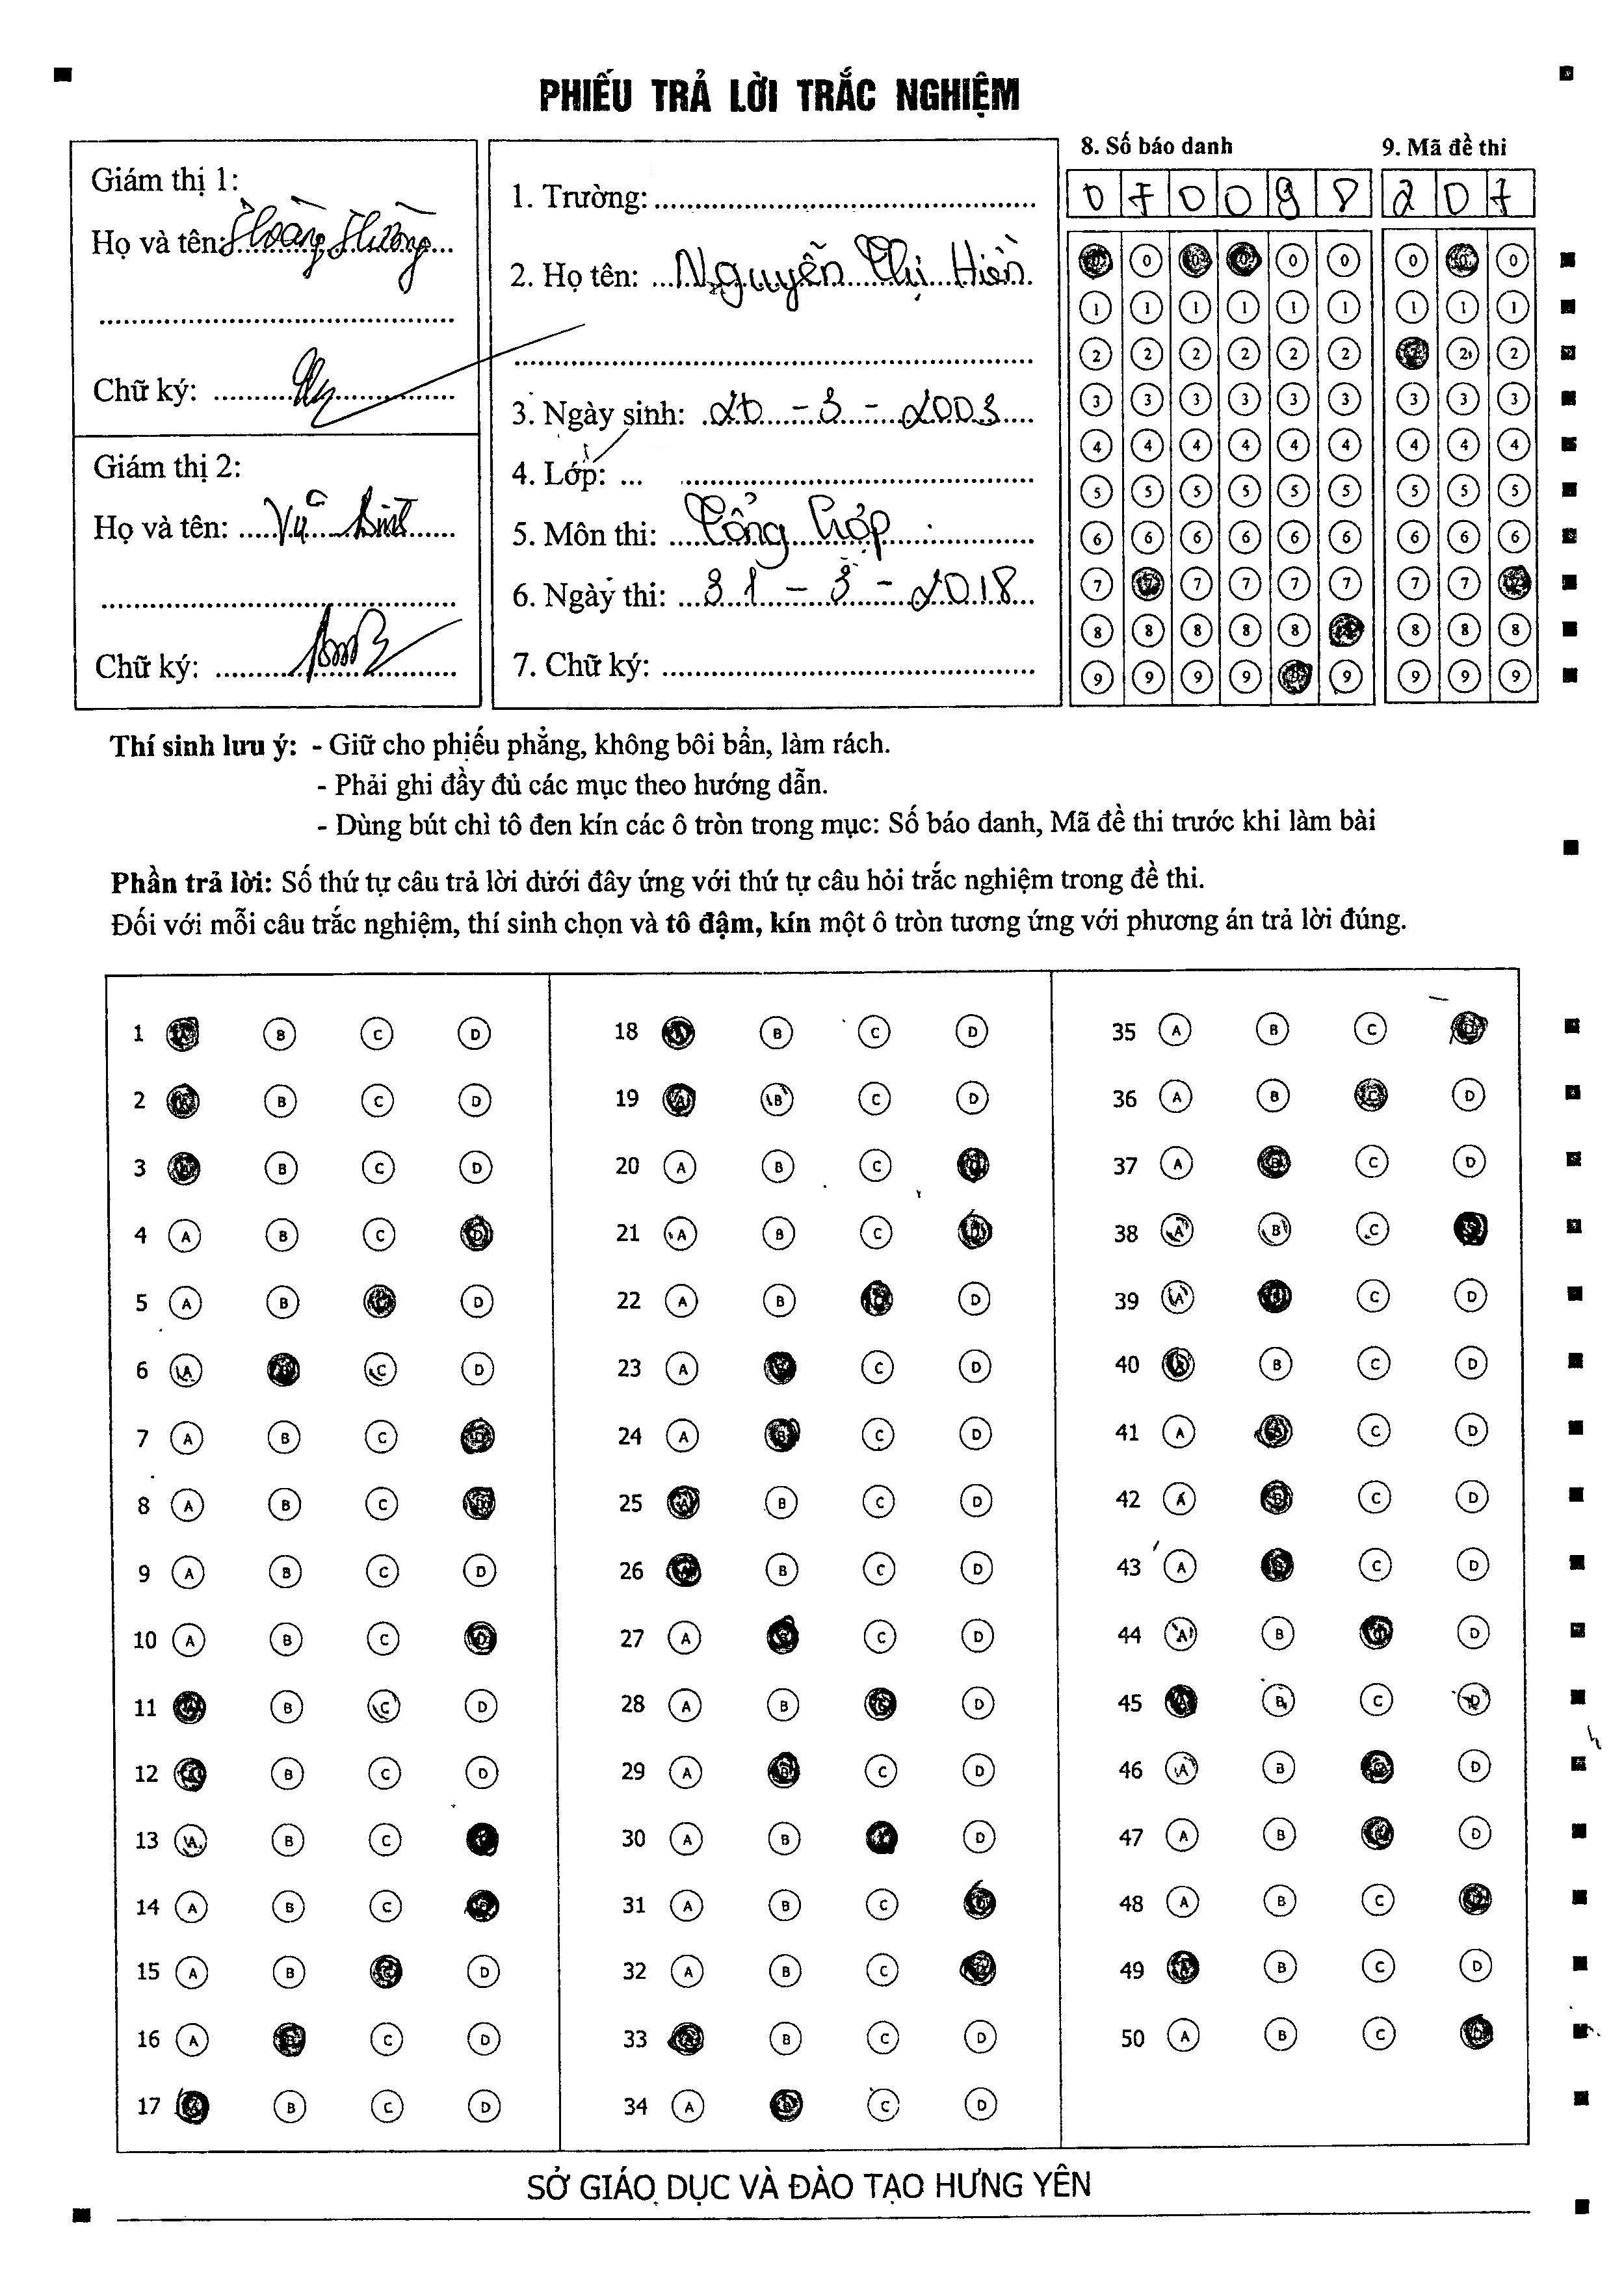 PHIẾU TRẢ LỜI TRẮC NGHIỆM
Giám thị 1:
Họ và tên: Hoàng Hường
Chữ ký:
Giám thị 2:
Họ và tên: Vũ
Chữ ký:
1. Trường:
2. Họ tên: Nguyễn Thị Hiền
3. Ngày sinh: 20 - 3 - 2003
4. Lớp:
5. Môn thi: Tổng hợp
6. Ngày thi: 31 - 3 - 2018
7. Chữ ký:
8. Số báo danh
0 7 0 0 9 8
0 0 0 0 0 0
1 1 1 1 1 1
2 2 2 2 2 2
3 3 3 3 3 3
4 4 4 4 4 4
5 5 5 5 5 5
6 6 6 6 6 6
7 7 7 7 7 7
8 8 8 8 8 8
9 9 9 9 9 9
9. Mã đề thi
2 0 7
0 0 0
1 1 1
2 2 2
3 3 3
4 4 4
5 5 5
6 6 6
7 7 7
8 8 8
9 9 9
Thí sinh lưu ý: - Giữ cho phiếu phẳng, không bôi bẩn, làm rách.
- Phải ghi đầy đủ các mục theo hướng dẫn.
- Dùng bút chì tô đen kín các ô tròn trong mục: Số báo danh, Mã đề thi trước khi làm bài
Phần trả lời: Số thứ tự câu trả lời dưới đây ứng với thứ tự câu hỏi trắc nghiệm trong đề thi.
Đối với mỗi câu trắc nghiệm, thí sinh chọn và tô đậm, kín một ô tròn tương ứng với phương án trả lời đúng.
1 A B C D
2 A B C D
3 A B C D
4 A B C D
5 A B C D
6 A B C D
7 A B C D
8 A B C D
9 A B C D
10 A B C D
11 A B C D
12 A B C D
13 A B C D
14 A B C D
15 A B C D
16 A B C D
17 A B C D
18 A B C D
19 A B C D
20 A B C D
21 A B C D
22 A B C D
23 A B C D
24 A B C D
25 A B C D
26 A B C D
27 A B C D
28 A B C D
29 A B C D
30 A B C D
31 A B C D
32 A B C D
33 A B C D
34 A B C D
35 A B C D
36 A B C D
37 A B C D
38 A B C D
39 A B C D
40 A B C D
41 A B C D
42 A B C D
43 A B C D
44 A B C D
45 A B C D
46 A B C D
47 A B C D
48 A B C D
49 A B C D
50 A B C D
SỞ GIÁO DỤC VÀ ĐÀO TẠO HƯNG YÊN